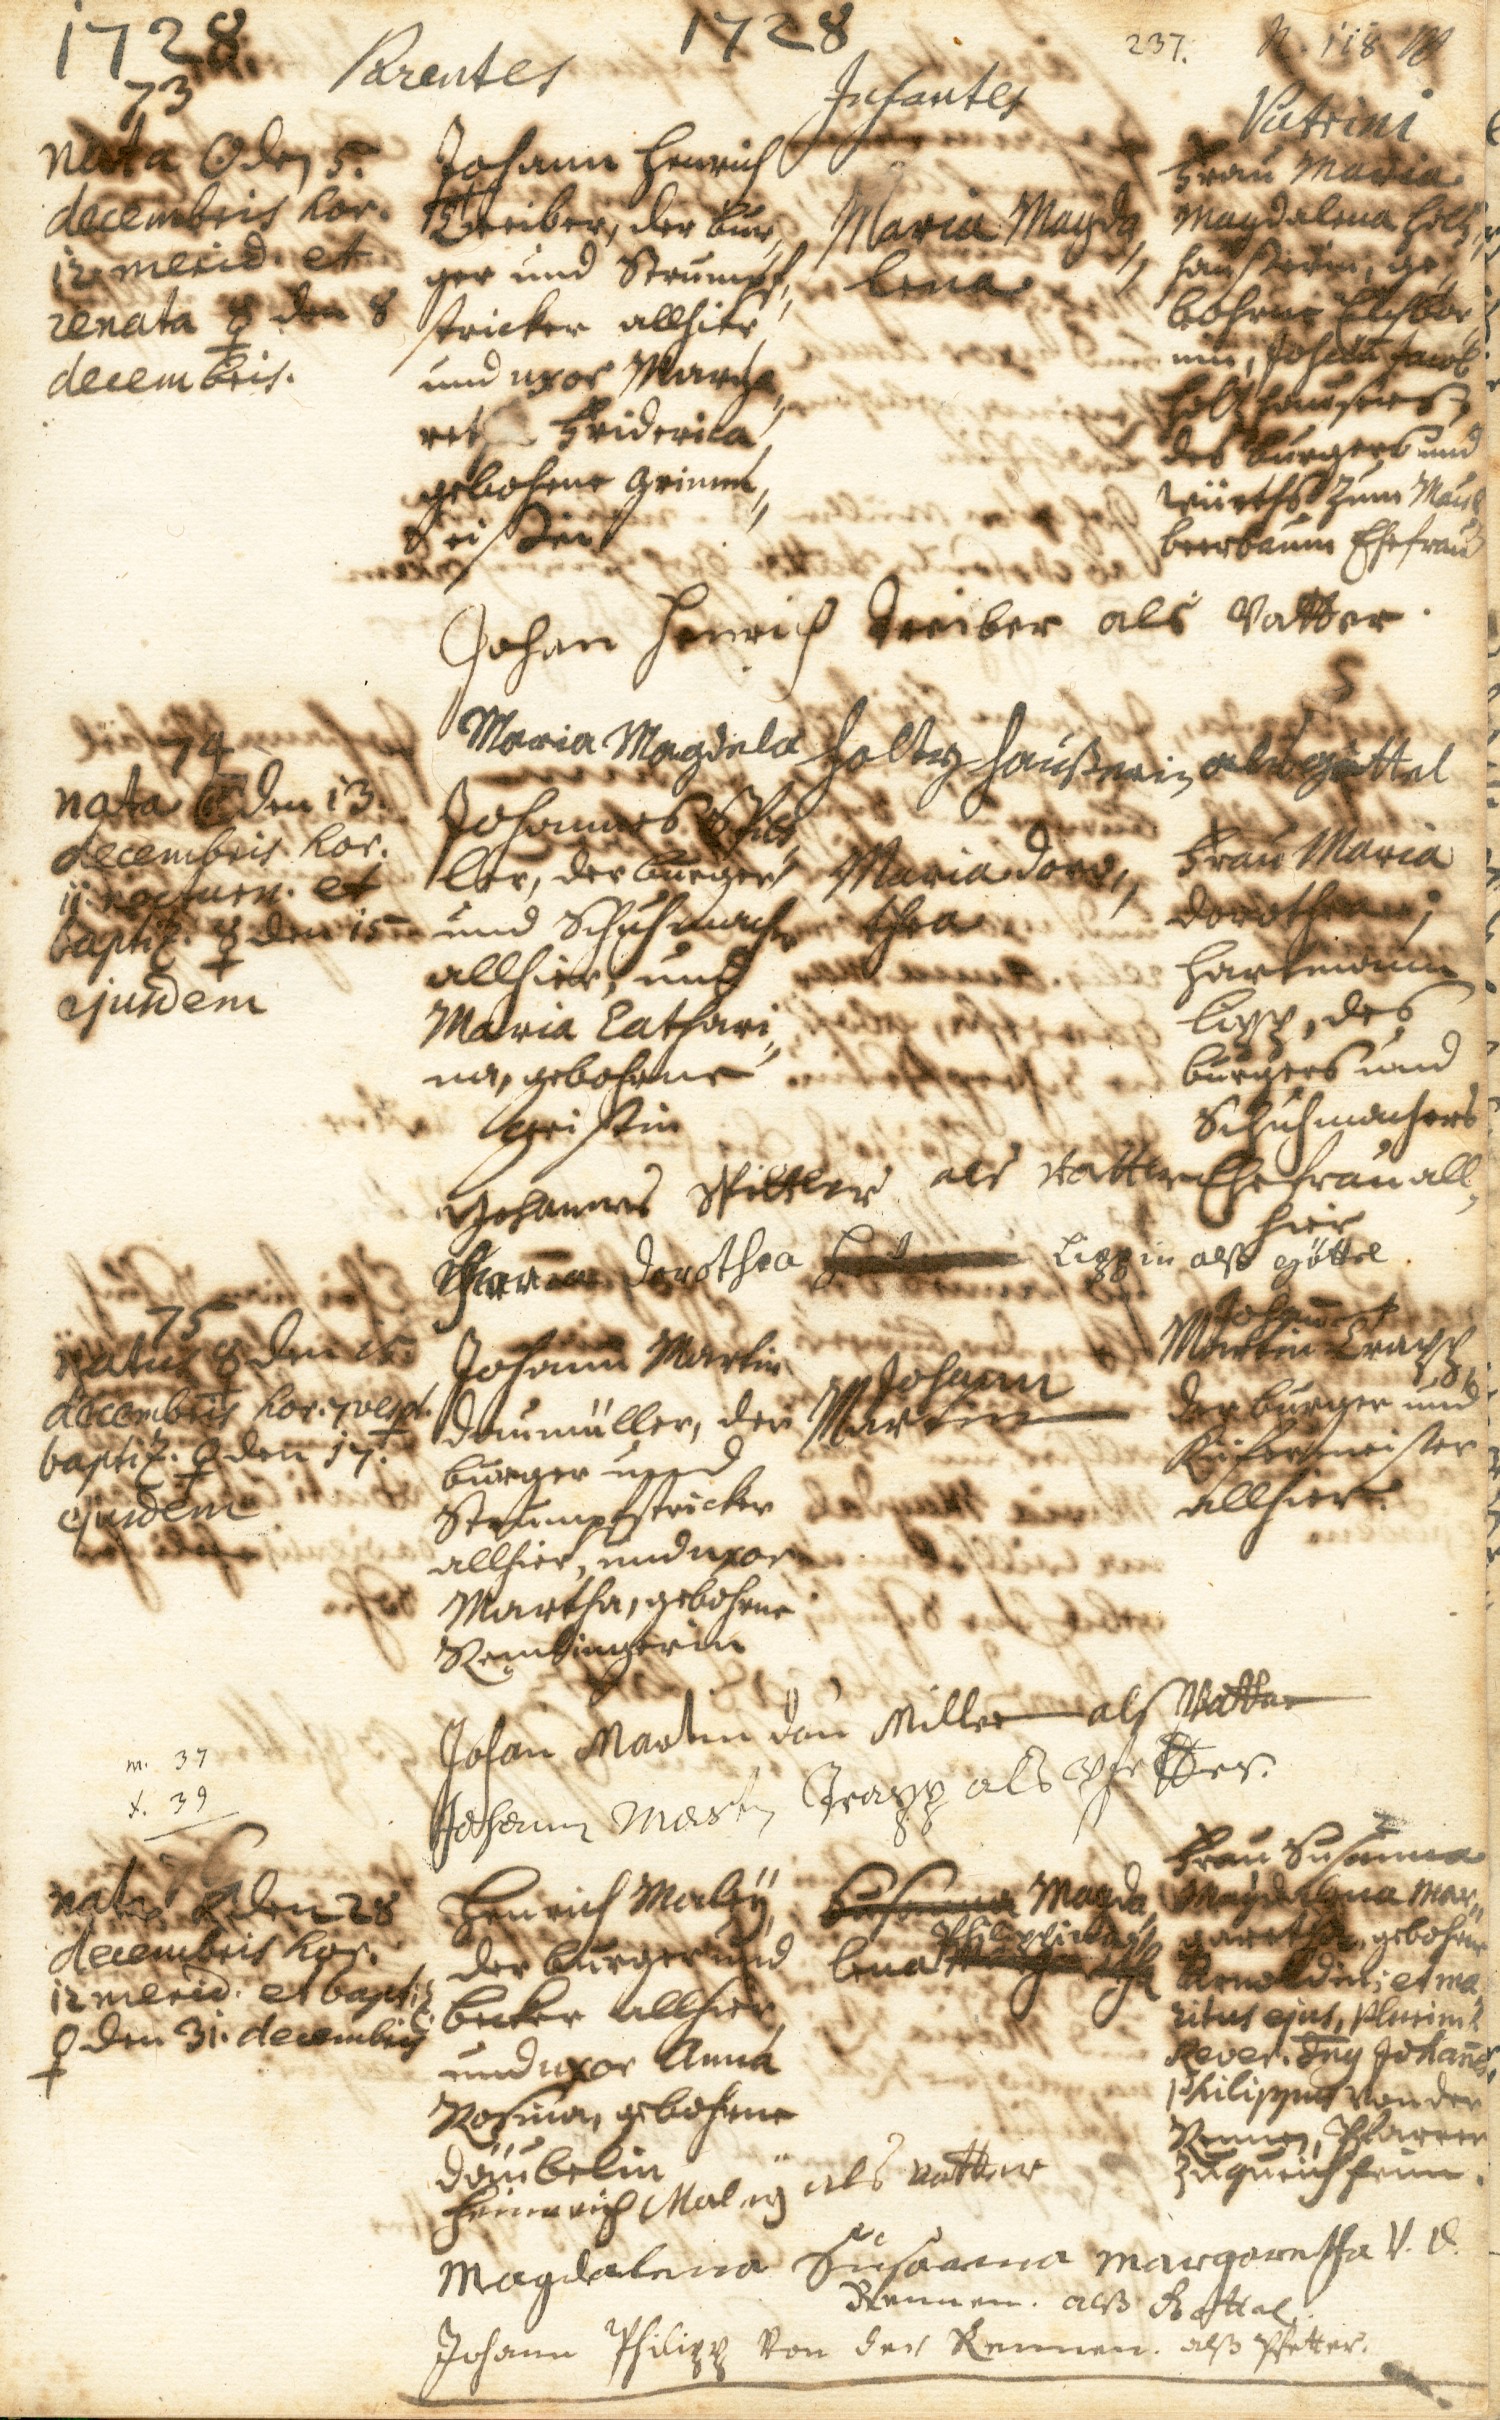 1728
1728
237.
Parentes
Infantes
Patrini
73
nata ☉ den 5.
decembris hor.
12 merid. et
renata ☿ den 8
decembris.
Johann Henrich
Treiber, der bur„
ger und Strumpf„
stricker allhier
und uxor Marga„
ret Friderica,
gebohrne Grimm„
eisin
Maria Magda„
lena
Frau Maria
Magdalena Holtz„
hauserin, ge„
bohrne
nin, Johann Jacob
Holtzhausers,
des burgers und
würths zum Maul
beerbaum Ehefrau
Johan Henrich Treiber als Vatter.
Maria Magdela Holtzhaußerin als göttel
74
nata den 13.
decembris hor.
11 nocturn. et
baptiz. ☿ den 15
ejusdem
Johannes Spitt„
ler, der burger
und Schuhmacher
allhier, und
Maria Cathari„
na, gebohrne
Geistin
Maria Doro„
thea
Frau Maria
Dorothea,
Hartmann
Lipp, des
burgers und
Schuhmachers
Ehefrau all„
hier
Johannes Spittler als Vatter
Dorothea Lippin alß göttel
75
natus ☿ den 15.
decembris hor. 7 vesp.
baptiz. ♀ den 17.
ejusdem
Johann Martin
Daumüller, der
burger und
Strumpfstricker
allhier, und uxor
Martha, gebohrne
Johann
Martin
Johann
Martin Trapp,
der burger und
Küfermeister
allhier.
Johan Martin Dau Miller als Vatter
Johann Martin Trapp als Pfetter.
m. 37
f. 39
nata den 28
decembris hor.
12 merid. et baptiz
♀ den 31. decembris
Henrich Maley,
der burger und
becker allhier
und uxor Anna
Rosina, gebohrne
Däubelin
Susanna Magda„
Philippina
lena Margaretha
Frau Susanna
Magdalena Mar„
garetha, gebohrne
Arnoldin; et ma„
ritus ejus, plurim
Rever. Dns Johannes
Philippus von der
Rennen, Pfarrer
Heinrich Maley als Vatter
Magdalena Susanna Margaretha V. D.
Rennen. alß Gottel.
Johann Philipp Von der Rennen. alß Pfetter.